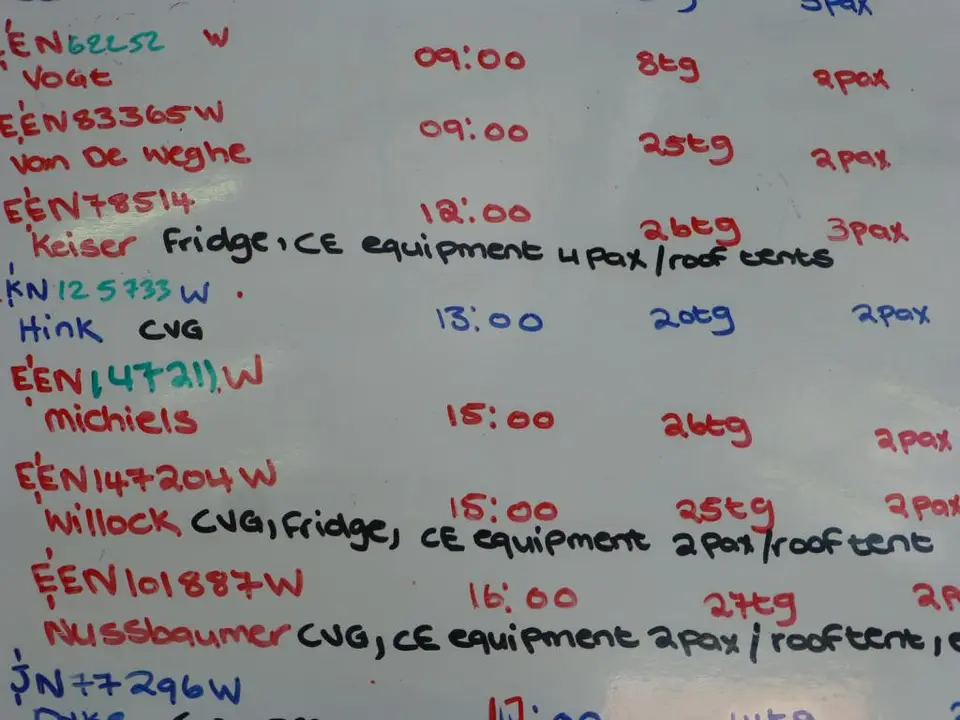 3pax
EN62252 W 09:00 8tg 2pax
Vogt
EEN83365W 09:00 25tg 2pax
Van De Weghe
EEN78514 12:00 26tg 3pax
Keiser Fridge, CE equipment 4pax/roof tents
KN125733W
Hink CVG 13:00 20tg 2pax
EEN14721W
Michiels 15:00 26tg 2pax
EEN147204W
Willock CVG, Fridge, 15:00 25tg 2pax
CE equipment 2pax/rooftent
EEN101887W 16:00 27tg
Nussbaumer CVG, CE equipment 2pax/rooftent,
JN77296W